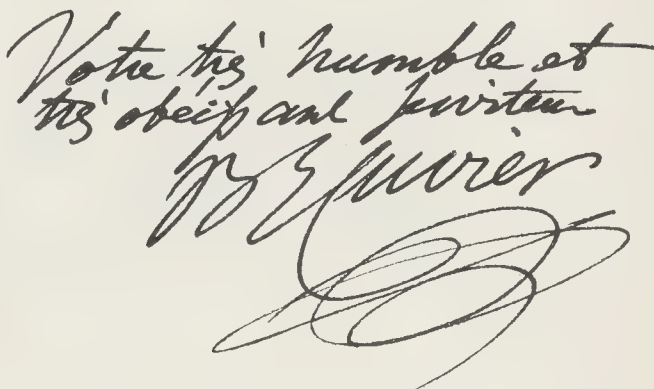 Votre très humble et
très obéissant serviteur
B Cuvier